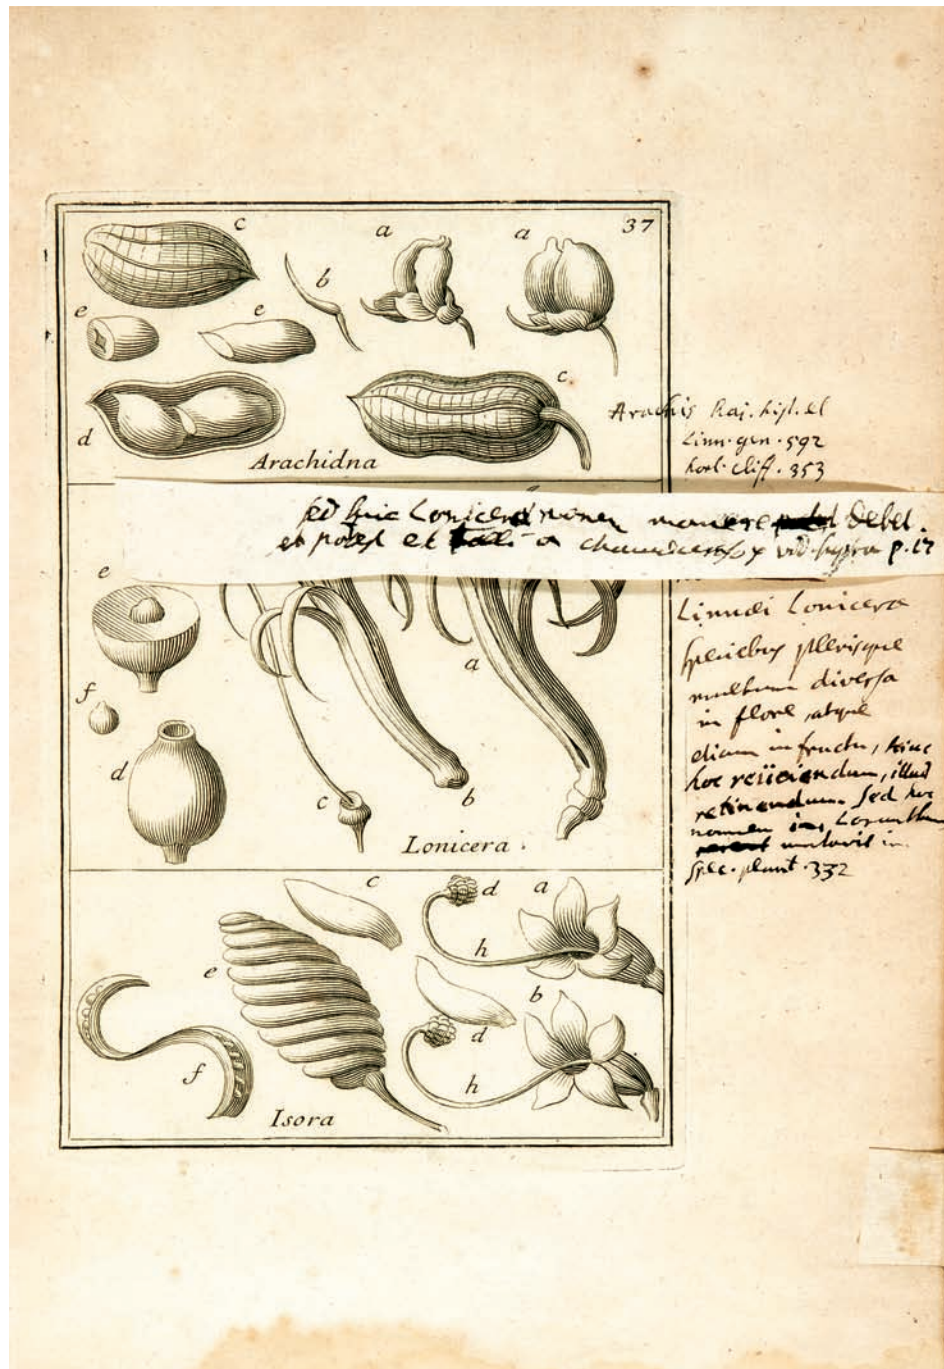 37
c
a
a
b
e
e
c
d
Arachidna
Arachis Raj. hist. et
Linn. gen. 592
hort. Cliff. 353
sed huic Loniceræ nomen manere debet.
et potest et vid. supra p. 17
e
a
f
d
c
b
Lonicera.
Linnæi Lonicera
speciebus plerisque
multum diversa
in flore, atque
etiam in fructu, hinc
hoc reiiciendum, illud
retinendum. Sed hoc
nomen in Loranthum
mutavit in
spec. plant. 332
c
d
a
h
e
b
d
f
h
Isora